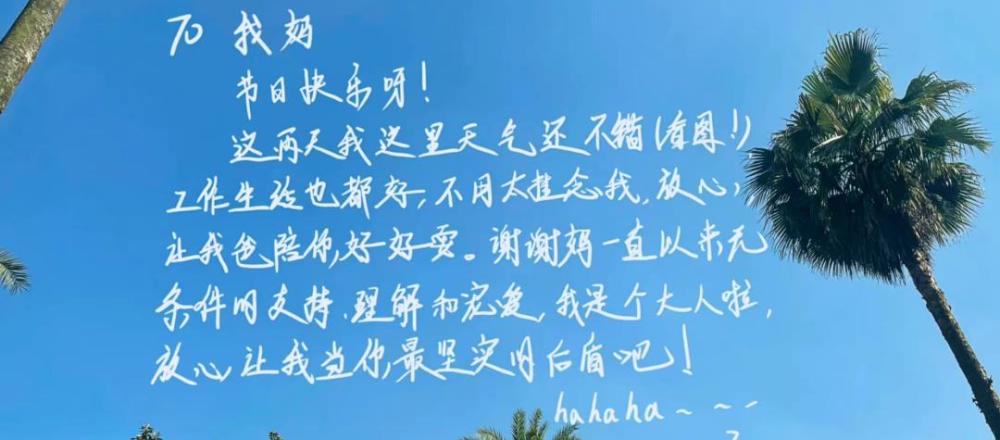 TO 我妈
节日快乐呀!
这两天我这里天气还不错(看图!)
工作生活也都好,不用太挂念我,放心,
让我爸陪你,好好耍。谢谢妈一直以来无
条件的支持、理解和宠爱,我是个大人啦,
放心,让我当你,最坚实的后盾吧!
hahaha~~~